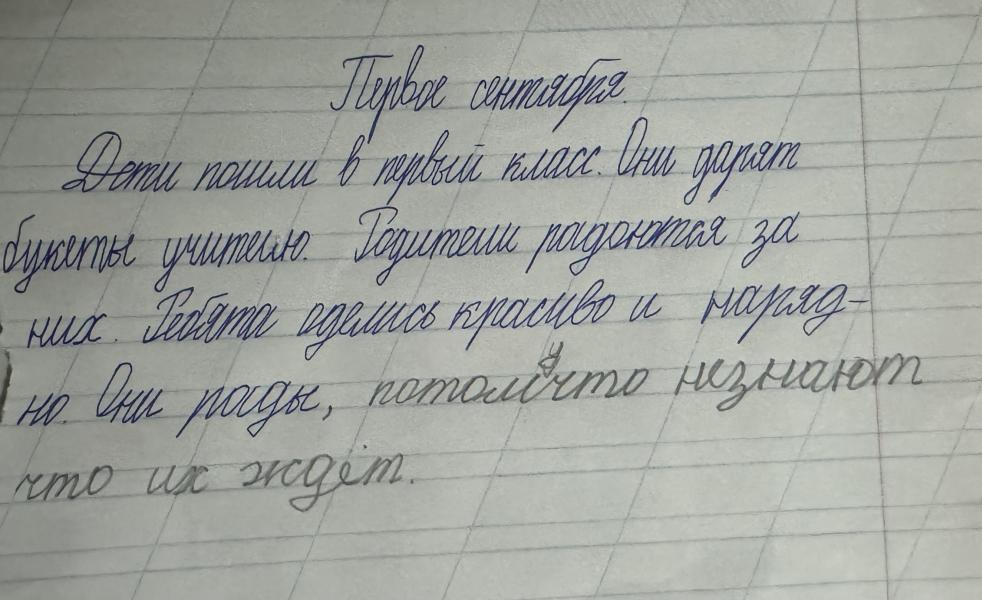 Первое сентября.
Дети пошли в первый класс. Они дарят
букеты учителю. Родители радаются за
них. Ребята оделись красиво и наряд-
но. Они рады, потому что незнают
что их ждёт.